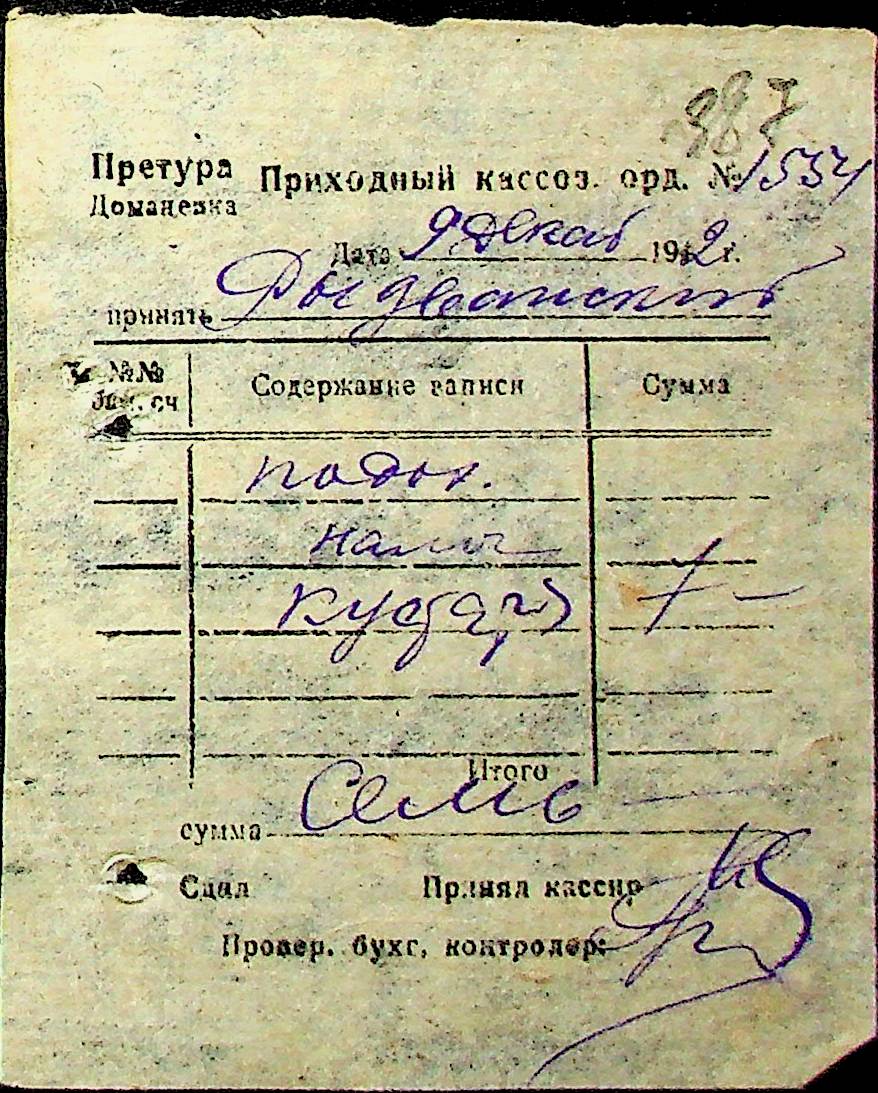 387
Претура Приходный кассов. орд. № 1534
Доманевка
Дата 9 Декаб 1942 г.
принять Рыдванский
№№ Содержание записи Сумма
сч
подох.
налог
кустар 7 —
Итого
сумма Семь
Сдал Принял кассир
Провер. бухг, контролер: